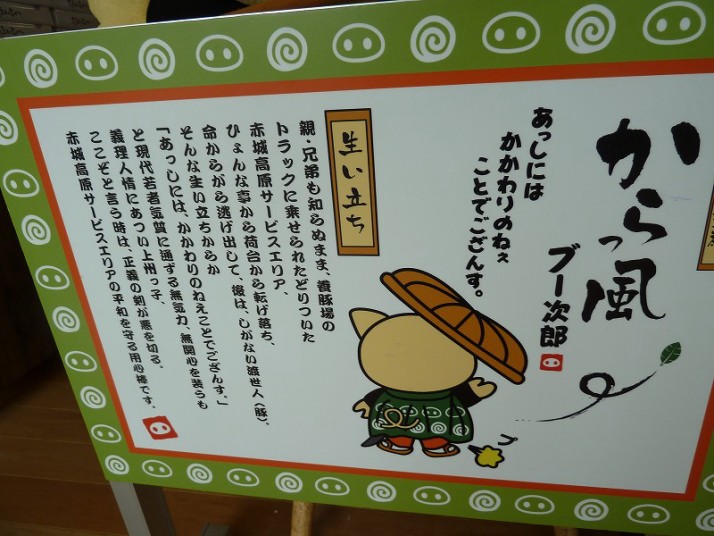 からっ風
ブー次郎
あっしには
かかわりのねぇ
ことでござんす。
生い立ち
親・兄弟も知らぬまま、養豚場の
トラックに乗せられたどりついた
赤城高原サービスエリア、
ひょんな事から荷台から転げ落ち、
命からがら逃げ出して、後は、しがない渡世人(豚)。
そんな生い立ちからか
「あっしには、かかわりのねえことでござんす。」
と現代若者気質に通ずる無気力、無関心を装うも
義理人情にあつい上州っ子、
ここぞと言う時は、正義の剣が悪を切る。
赤城高原サービスエリアの平和を守る用心棒です。
プ